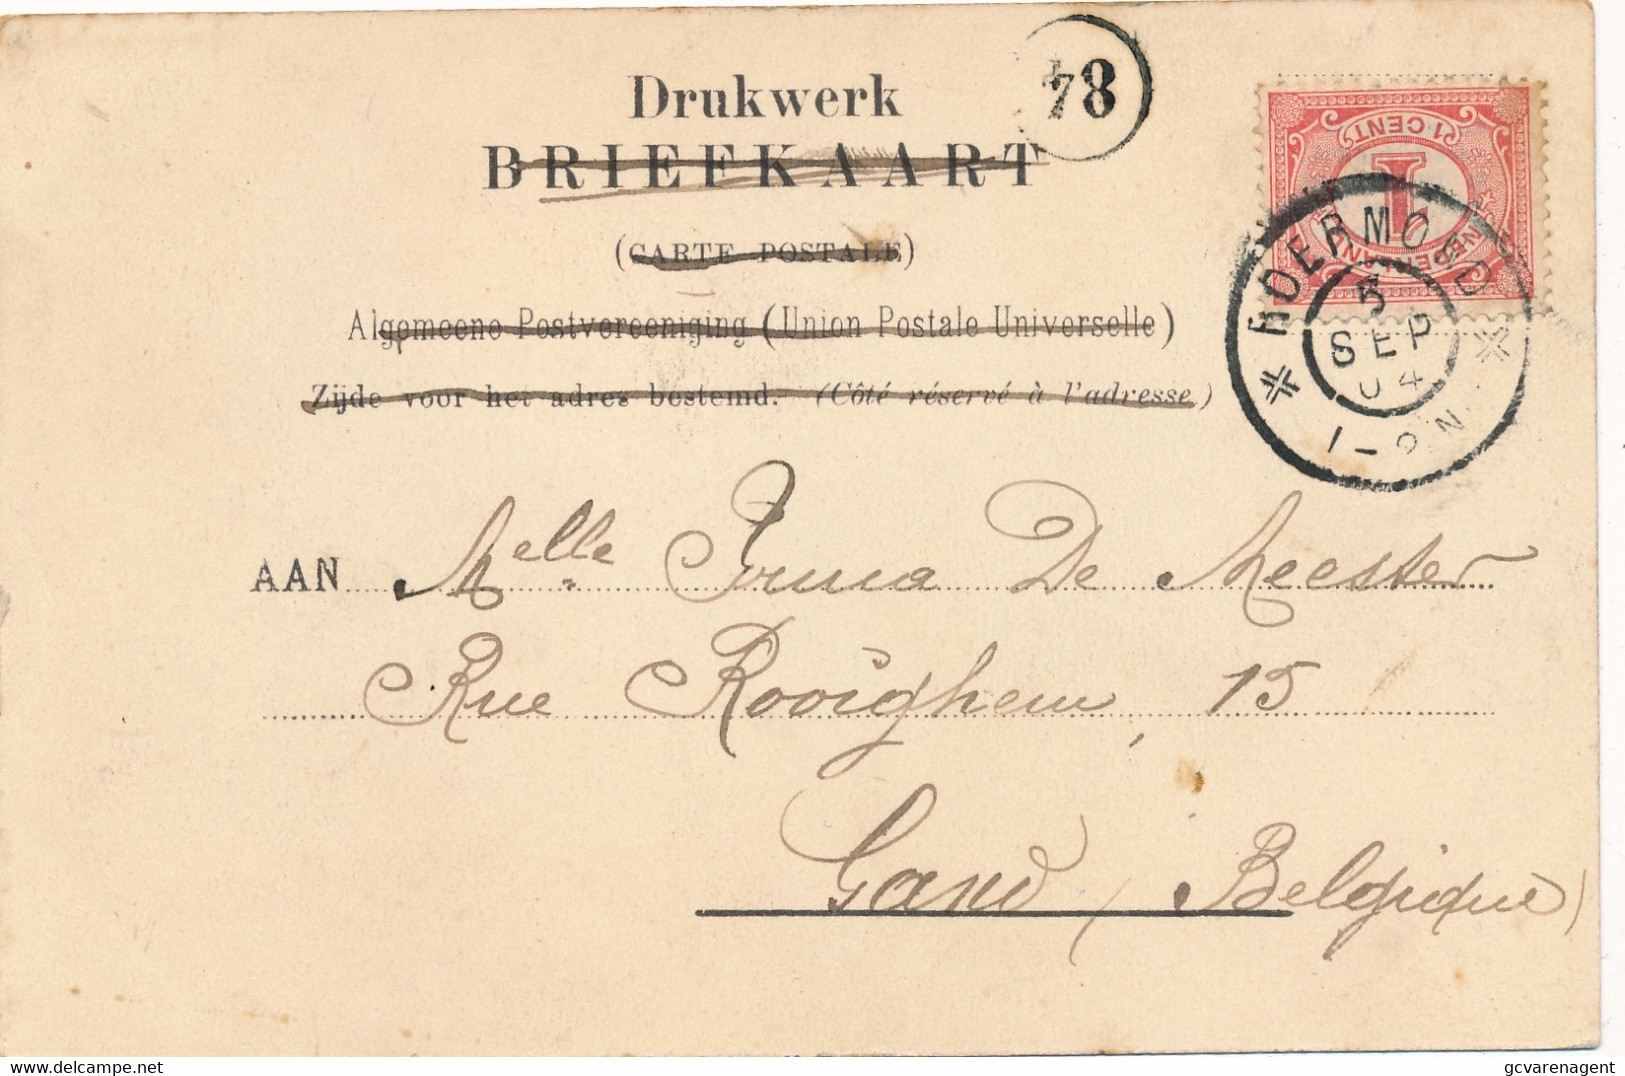 Drukwerk
478
BRIEFKAART
(CARTE POSTALE)
Algemeene Postvereeniging (Union Postale Universelle)
Zijde voor het adres bestemd. (Côté réservé à l'adresse)
1 CENT
1
NEDERLAND
ROERMOND
5
SEP
04
1-2N
AAN Melle Irma De Meester
Rue Rooighem, 15
Gand (Belgique)
https://www.delcampe.net
gcvarenagent